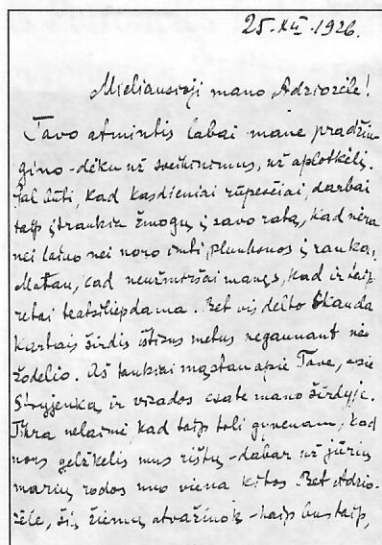 25. XII. 1926.
Mieliausioji mano Adriozėle!
Tavo atmintis labai mane pradžiu-
gino - dėku už sveikinimus, už aplotkėlį.
Žal būti, kad kasdieniai rūpesčiai, darbai
taip įtraukia žmogų į savo ratą, kad nėra
nei laiko nei noro imti plunksnos į ranką.
Matau, kad neužmiršai manęs, kad ir taip
retai teatsiliepdama. Bet vis delto skauda
kartais širdis ištisus metus negaunant nė
žodelio. Aš tankiai mąstau apie Tave, apie
ir visados esate mano širdyje.
Tikra nelaimė, kad taip toli gyvenam, kad
nors gelžkelis mus rištų - dabar už jūrių
marių rodos nuo viena kitos. Bet Adrio-
zėle, šią žiemą atvažiuok - kaip bus taip,